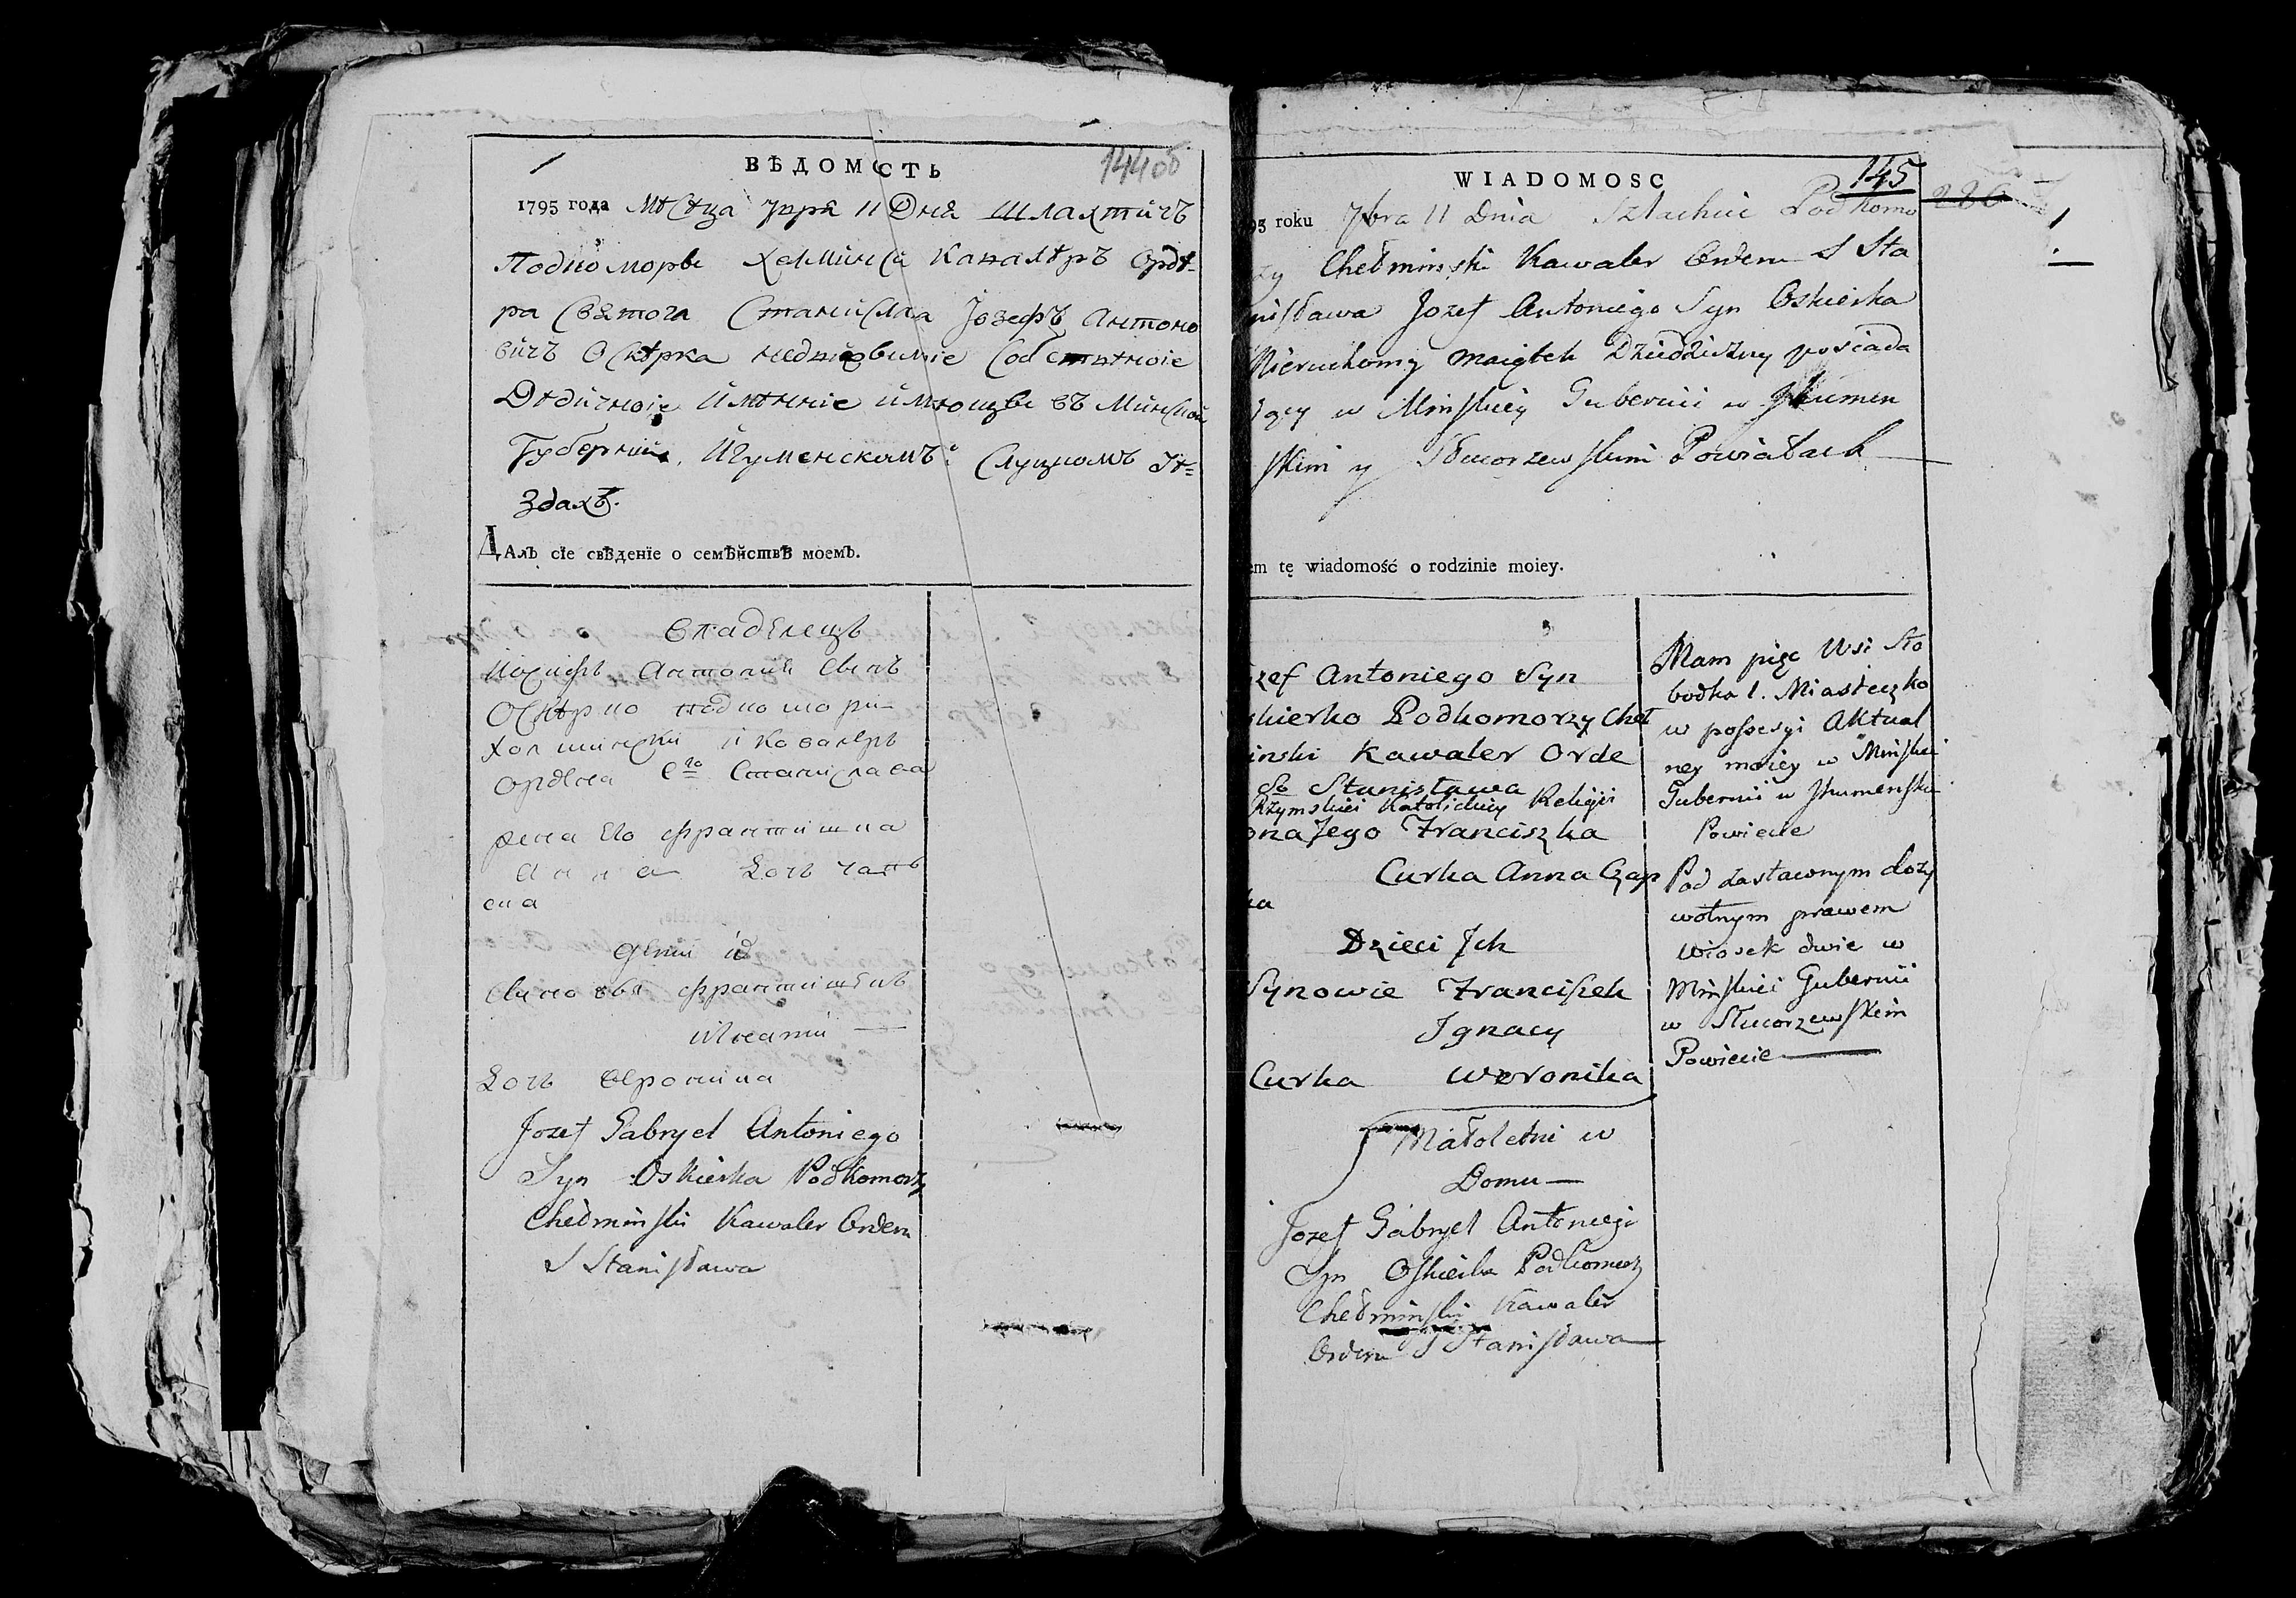 ВѢДОМОСТЬ
144об
1795 года Мѣсяца 7бря 11 Дня Шляхтичъ
Подкоморы Хелминси Кавалѣръ Орде-
ра Святога Станислава Јозефъ Антоно
вичъ Оскѣрка недвижиміе собственоіе
Дѣдичноіе имѣніе имѣющы въ Минской
Губерніи Игуменскомъ и Слуцкомъ Уѣ=
здахъ.
ДАлъ сіе свѣденіе о семѣйствѣ моемъ.
владелецъ
Иосифъ Антония сынъ
Оскѣрко подкомори
Холмински и Ковалеръ
ордена С го Станислава
жена Его Франтишка
Анна Дочъ Чапъ
ска
дети их
Синовья Франтишекъ
Игнати
Дочъ Вероника
Jozef Gabryel Antoniego
Syn Oskierka Podkomorzy
Chełminski Kawaler Orderu
S Stanisława
WIADOMOSC
145
226
1
95 roku 7bra 11 Dnia Szlachcic Podkomo
rzy Chełminski Kawaler Orderu S Sta
nisława Jozef Antoniego Syn Oskierka
Nieruchomy maiątek Dziedziczny posiada
iący w Minskiey Gubernii w Jhumen
skim y Słuczorzewskim Powiatach
em tę wiadomość o rodzinie moiey.
zef Antoniego Syn
skierko Podkomorzy Cheł
inski Kawaler Orde
So Stanisława
Rzymskiei Katolickiey Religii
ona Jego Franciszka
Curka Anna Czap
ka
Dzieci Jch
Synowie Franciszek
Ignacy
Curka Weronika
Małoletni w
Domu
Jozef Gabryel Antoniego
Syn Oskierka Podkomorzy
Chełminski Kawaler
Orderu S Stanisława
Mam pięc Wsi Sło
bodka 1. Miasteczko
w possesyi Aktual
ney moiey w Minskiei
Gubernii w Jhumenskim
Powiecie
Pod zastawnym dozy
wotnym prawem
Wiosek dwie w
Minskiei Gubernii
w Słuczorzewskim
Powiecie